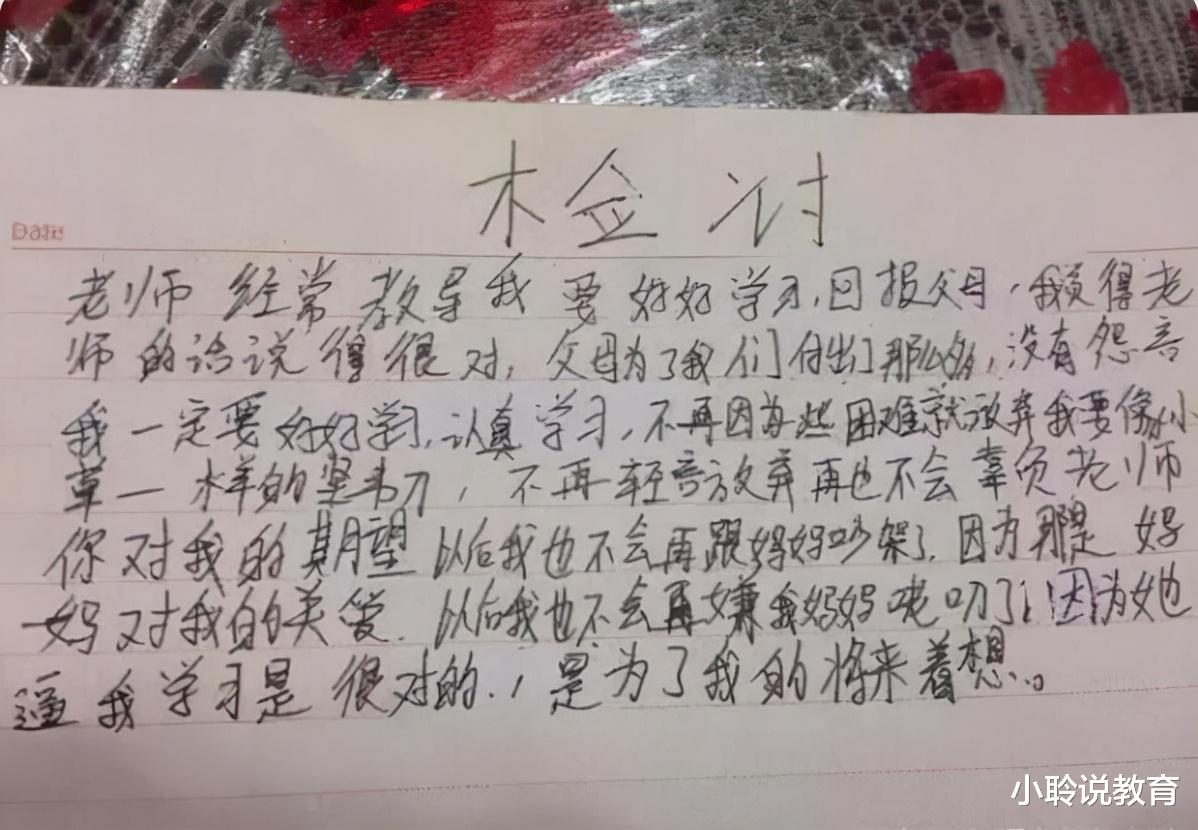 检讨
Date
老师经常教导我要好好学习，回报父母，我觉得老
师的话说得很对，父母为了我们付出了那么多，没有怨言
我一定要好好学习，认真学习，不再因为些困难就放弃我要像小
草一样的坚韧，不再轻言放弃再也不会辜负老师
你对我的期望以后我也不会再跟妈妈吵架了，因为那是妈
妈对我的关爱．以后我也不会再嫌我妈妈唠叨了，因为她
逼我学习是很对的．，是为了我的将来着想．．。
小聆说教育